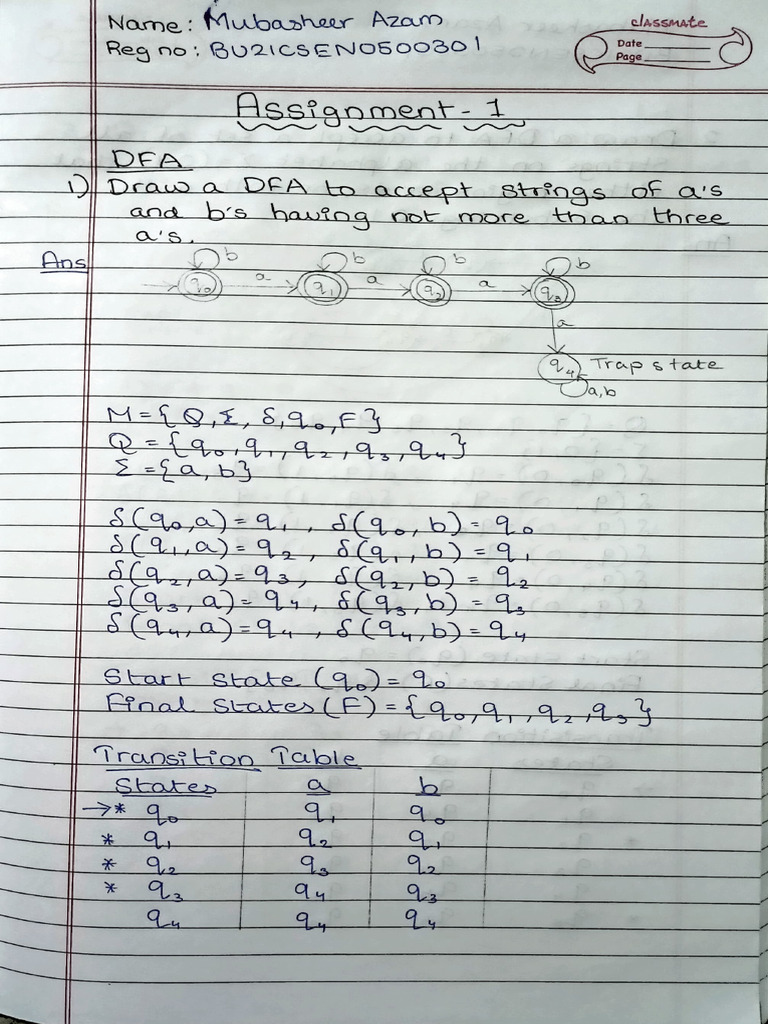 Name: Mubasheer Azam
Reg no: BU21CSEN0500301
classmate
Date
Page
Assignment - 1
DFA
1) Draw a DFA to accept strings of a's
and b's having not more than three
a's.
Ans
b b b b
q₀ a q₁ a q₂ a q₃
a
q₄ Trap state
a,b
M = {Q, Σ, δ, q₀, F}
Q = {q₀, q₁, q₂, q₃, q₄}
Σ = {a, b}
δ(q₀,a) = q₁, δ(q₀, b) = q₀
δ(q₁,a) = q₂, δ(q₁, b) = q₁
δ(q₂,a) = q₃, δ(q₂, b) = q₂
δ(q₃, a) = q₄, δ(q₃, b) = q₃
δ(q₄,a) = q₄, δ(q₄, b) = q₄
Start State (q₀) = q₀
Final States (F) = {q₀, q₁, q₂, q₃}
Transition Table
States a b
→* q₀ q₁ q₀
* q₁ q₂ q₁
* q₂ q₃ q₂
* q₃ q₄ q₃
q₄ q₄ q₄